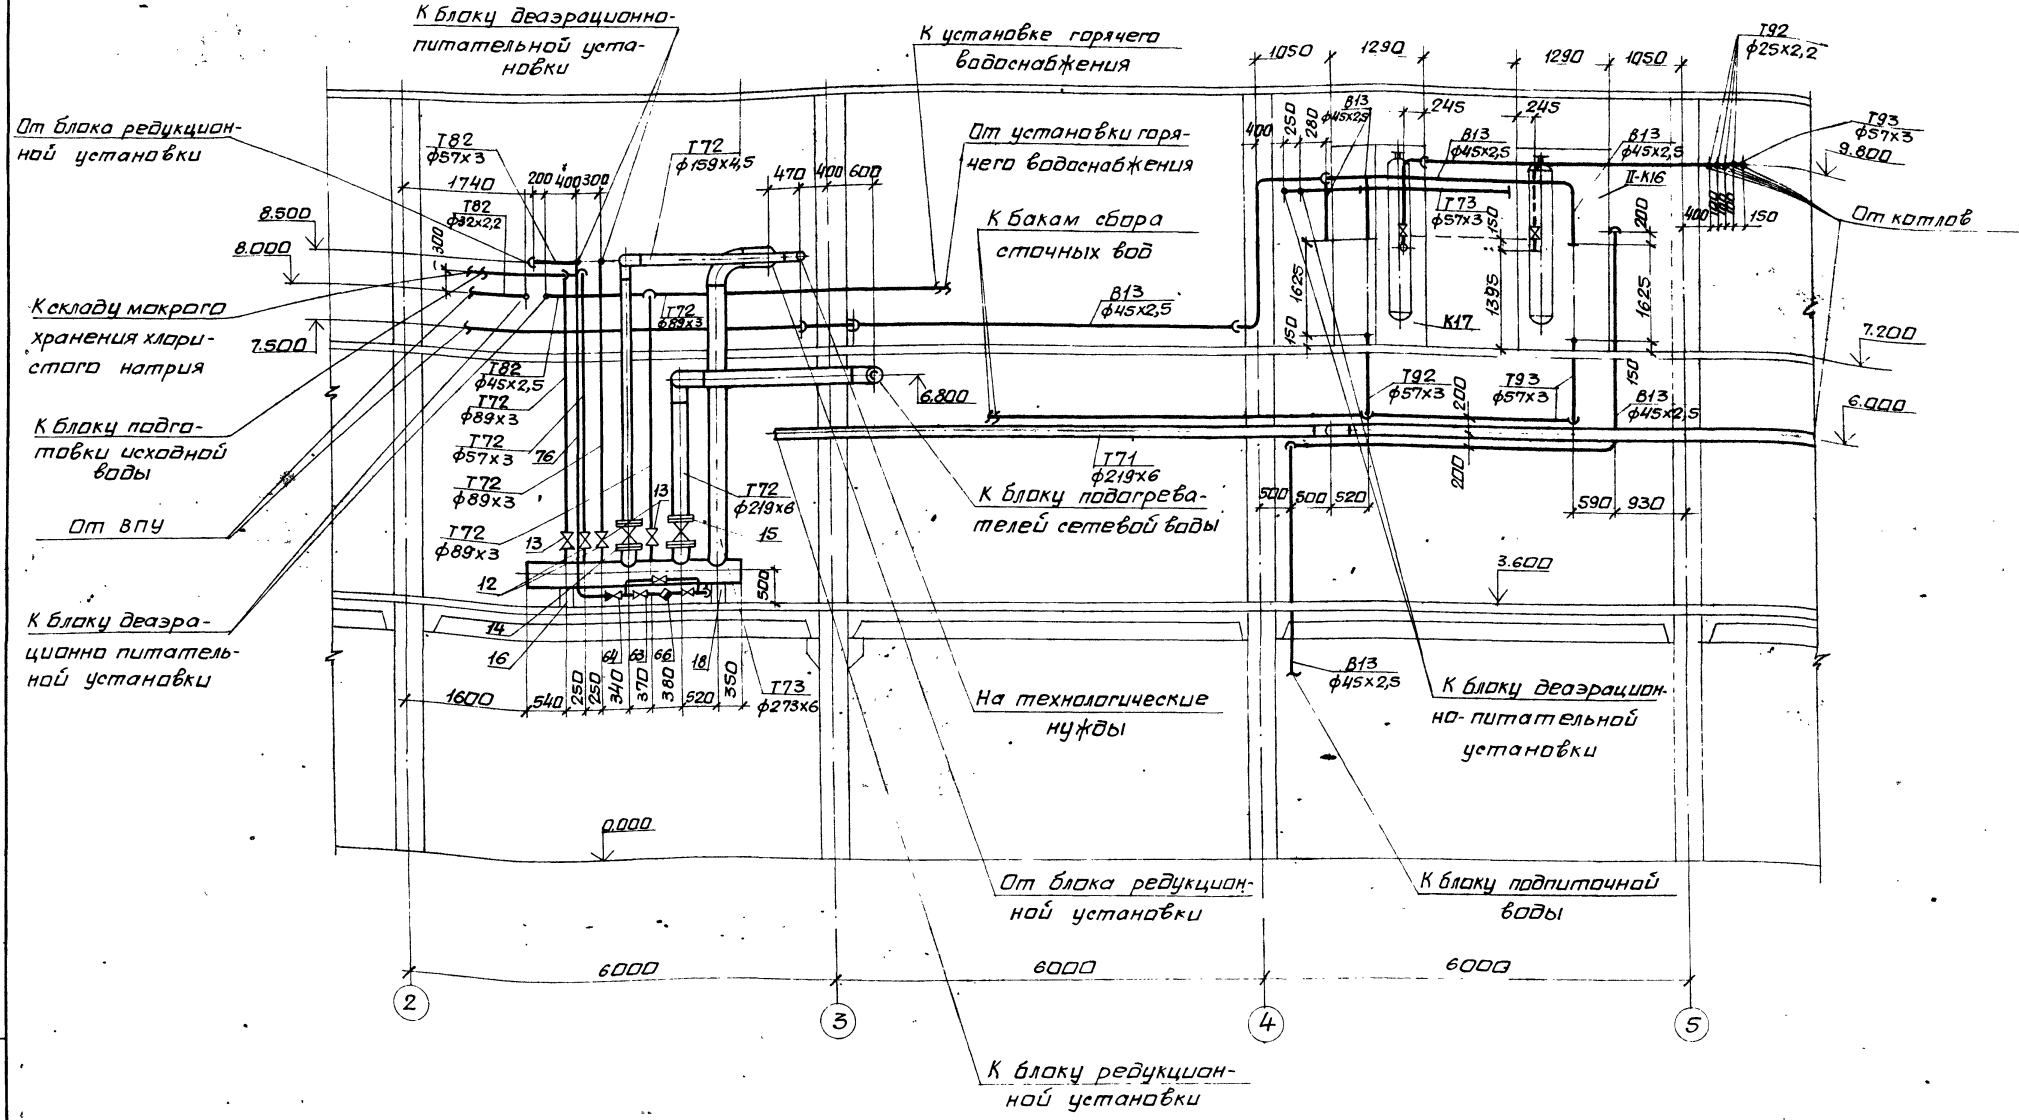 К блоку деаэрационно-
питательной уста-
новки
К установке горячего
водоснабжения
1050
1290
1290
1050
Т92
ф25х2,2
От блока редукцион-
ной установки
Т82
ф57х3
Т72
ф159х4,5
От установки горя-
чего водоснабжения
400
250
280
В13
ф45х2,5
245
245
В13
ф45х2,5
В13
ф45х2,5
Т93
ф57х3
9.800
1740
200
400
300
470
400
600
II-К16
Т82
ф32х2,2
8.500
8.000
300
К бакам сбора
сточных вод
Т73
ф57х3
150
200
400
150
От котлов
К складу мокрого
хранения хлори-
стого натрия
7.500
Т72
ф89х3
В13
ф45х2,5
1625
150
К17
1395
1625
150
7.200
Т82
ф45х2,5
6.800
Т92
ф57х3
200
Т93
ф57х3
В13
ф45х2,5
6.000
К блоку подго-
товки исходной
воды
Т72
ф89х3
Т72
ф57х3
76
Т72
ф89х3
13
Т72
ф219х6
Т71
ф219х6
200
К блоку подогрева-
телей сетевой воды
500
500
520
590
930
От ВПУ
Т72
ф89х3
13
15
12
500
3.600
К блоку деаэра-
ционно питатель-
ной установки
14
16
64
63
66
18
1600
540
250
250
340
370
380
520
350
Т73
ф273х6
На технологические
нужды
В13
ф45х2,5
К блоку деаэрацион-
но-питательной
установки
0.000
От блока редукцион-
ной установки
К блоку подпиточной
воды
6000
6000
6000
2
3
4
5
К блоку редукцион-
ной установки